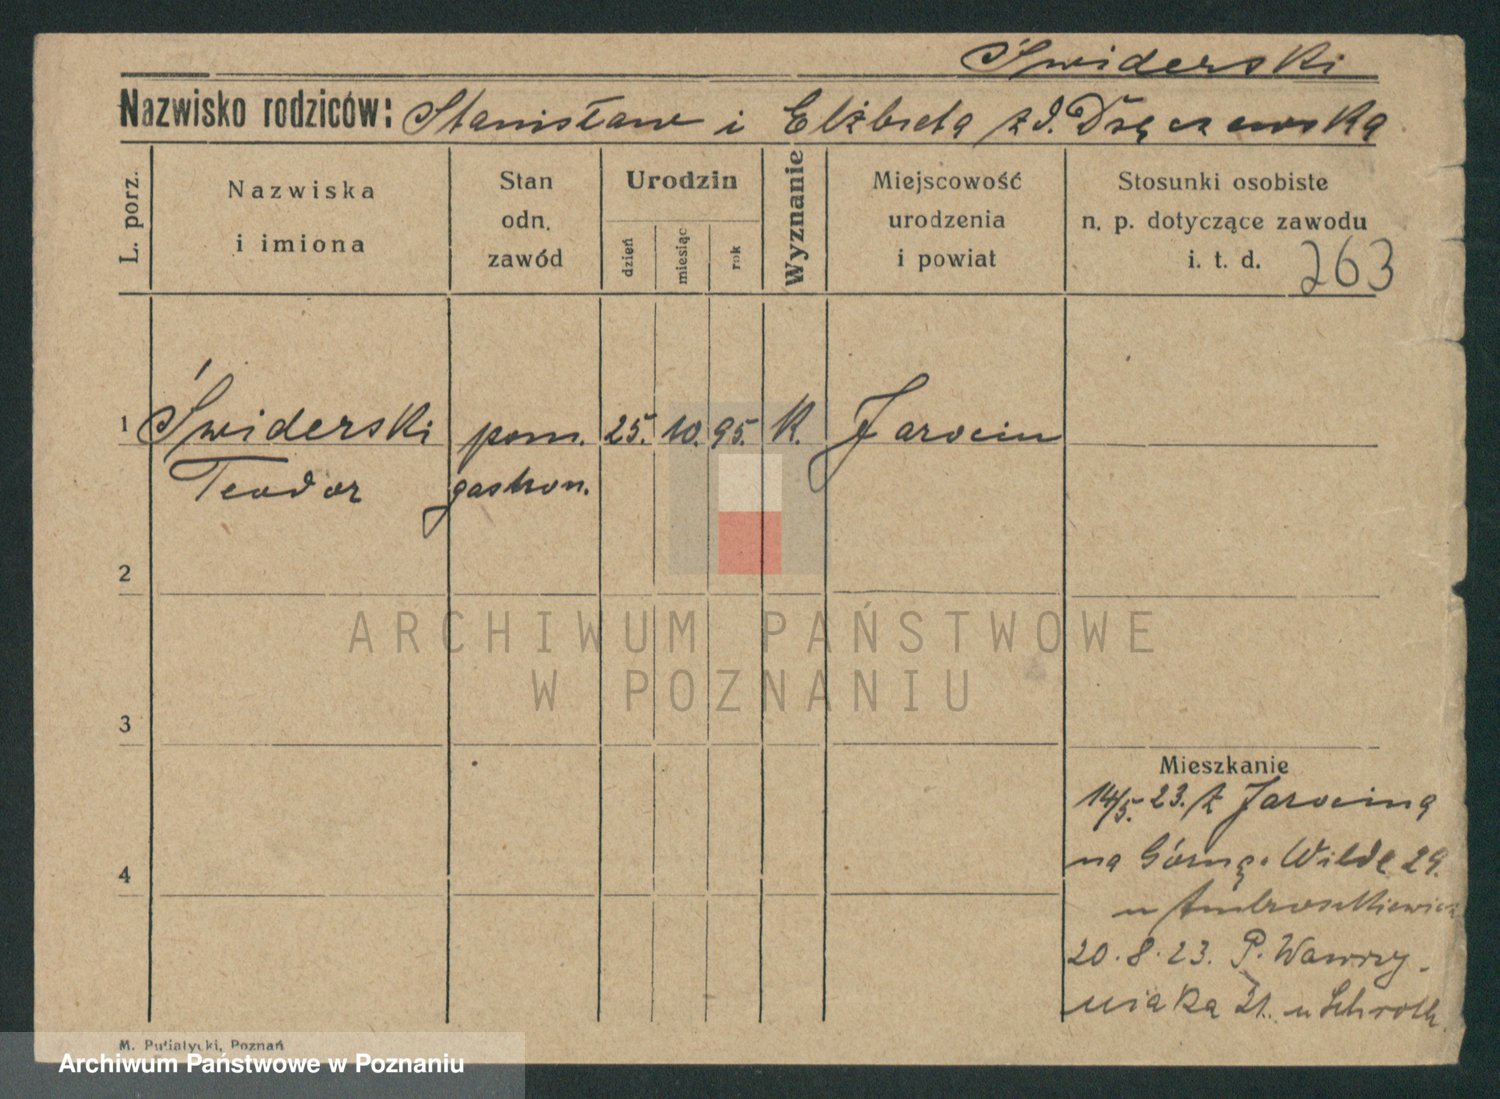 Świderski
Nazwisko rodziców: Stanisław i Elżbieta z d.
L. porz.
Nazwiska
i imiona
Stan
odn.
zawód
Urodzin
dzień
miesiąc
rok
Wyznanie
Miejscowość
urodzenia
i powiat
Stosunki osobiste
n. p. dotyczące zawodu
i. t. d. 263
1 Świderski pom. 25. 10. 95. K. Jarocin
Teodor gastron.
2
ARCHIWUM PAŃSTWOWE
W POZNANIU
3
Mieszkanie
14/5. 23. z Jarocina
4
na Górną Wildę 29.
u
20. 8. 23. P. Wawrzy-
niaka 21. u Schroth
M. Putiatycki, Poznań
Archiwum Państwowe w Poznaniu